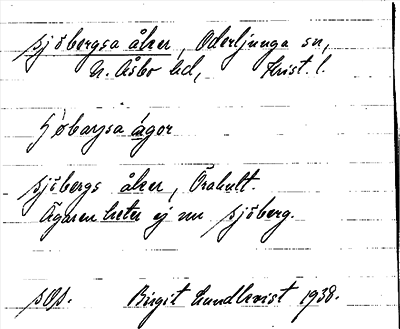 Sjöbergsa åker, Oderljunga sn,
N. Åsbo hd, Krist. l.
ágor
Sjöbergs åker, Örahult.
Ägaren heter ej nu Sjöberg.
Birgit Lundkvist 1938.